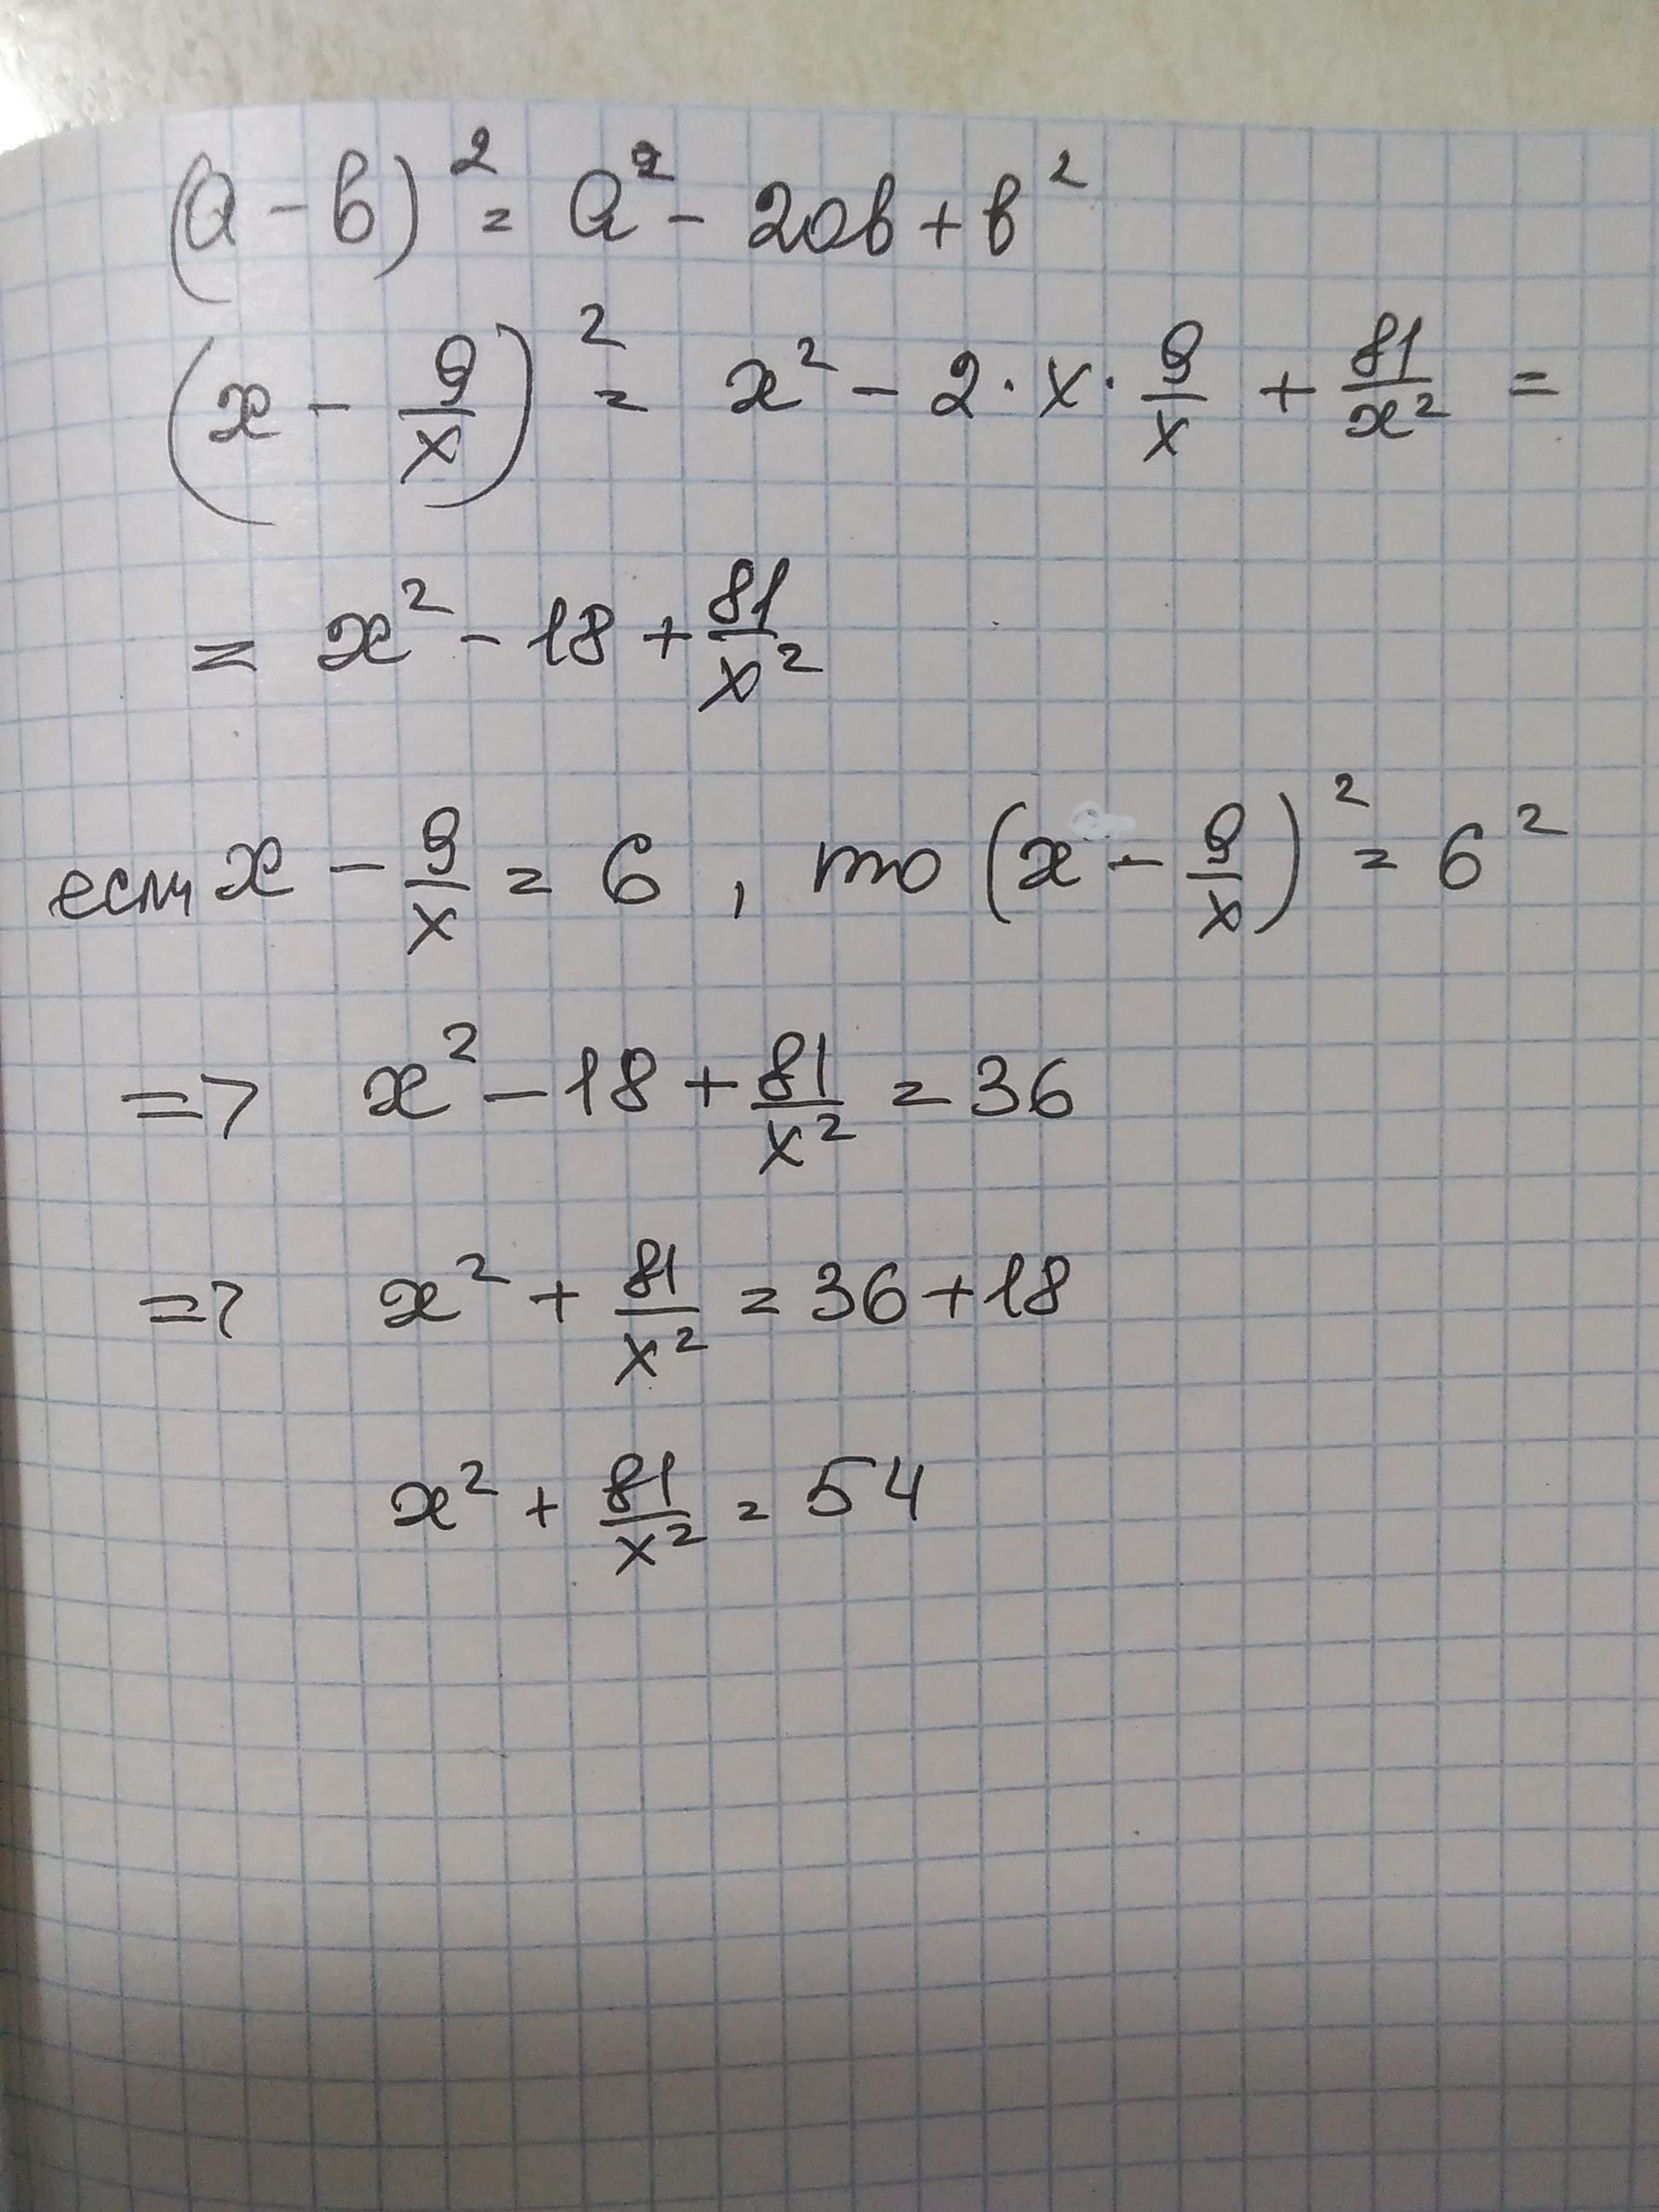 (a - b)² = a² - 2ab + b²
(x - 9/x)² = x² - 2 · x · 9/x + 81/x² =
= x² - 18 + 81/x²
если x - 9/x = 6, то (x - 9/x)² = 6²
=> x² - 18 + 81/x² = 36
=> x² + 81/x² = 36 + 18
x² + 81/x² = 54